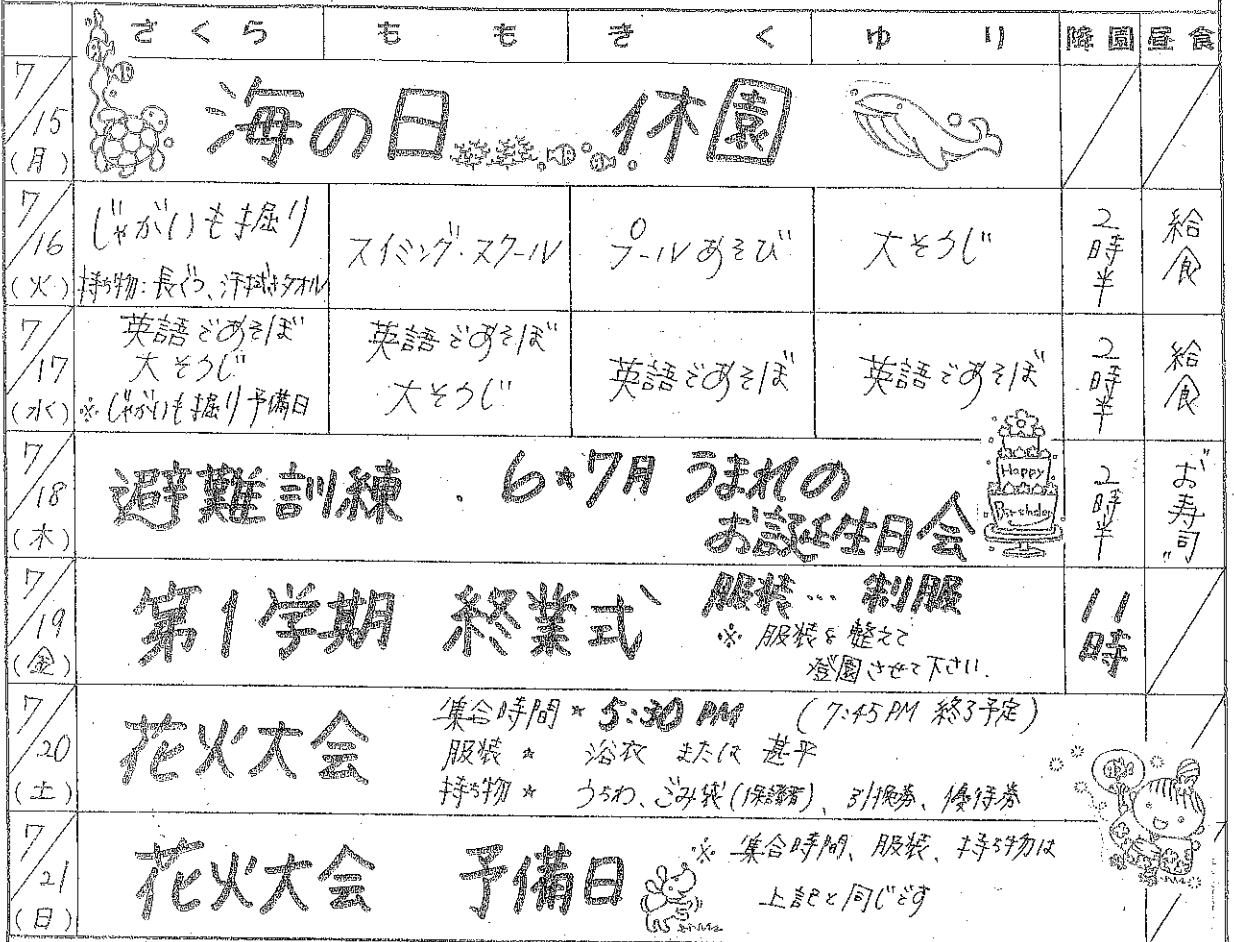 さくら もも きく ゆり 降園 昼食
7/15(月) 海の日 休園
7/16(火)
じゃがいも掘り
持ち物:長ぐつ、汗拭きタオル
スイミング・スクール
プールあそび
大そうじ
2時半
給食
7/17(水)
英語であそぼ
大そうじ
※じゃがいも掘り予備日
英語であそぼ
大そうじ
英語であそぼ
英語であそぼ
2時半
給食
7/18(木)
避難訓練 . 6★7月 うまれの
お誕生日会
Happy
Birthday
2時半
"お寿司"
7/19(金)
第1学期 終業式
服装… 制服
※ 服装を整えて
登園させて下さい.
11時
7/20(土)
花火大会
集合時間★5:30 PM (7:45PM 終了予定)
服装★ 浴衣 または 甚平
持ち物★ うちわ、ごみ袋(保護者)、引換券、優待券
7/21(日)
花火大会 予備日
※ 集合時間、服装、持ち物は
上記と同じです